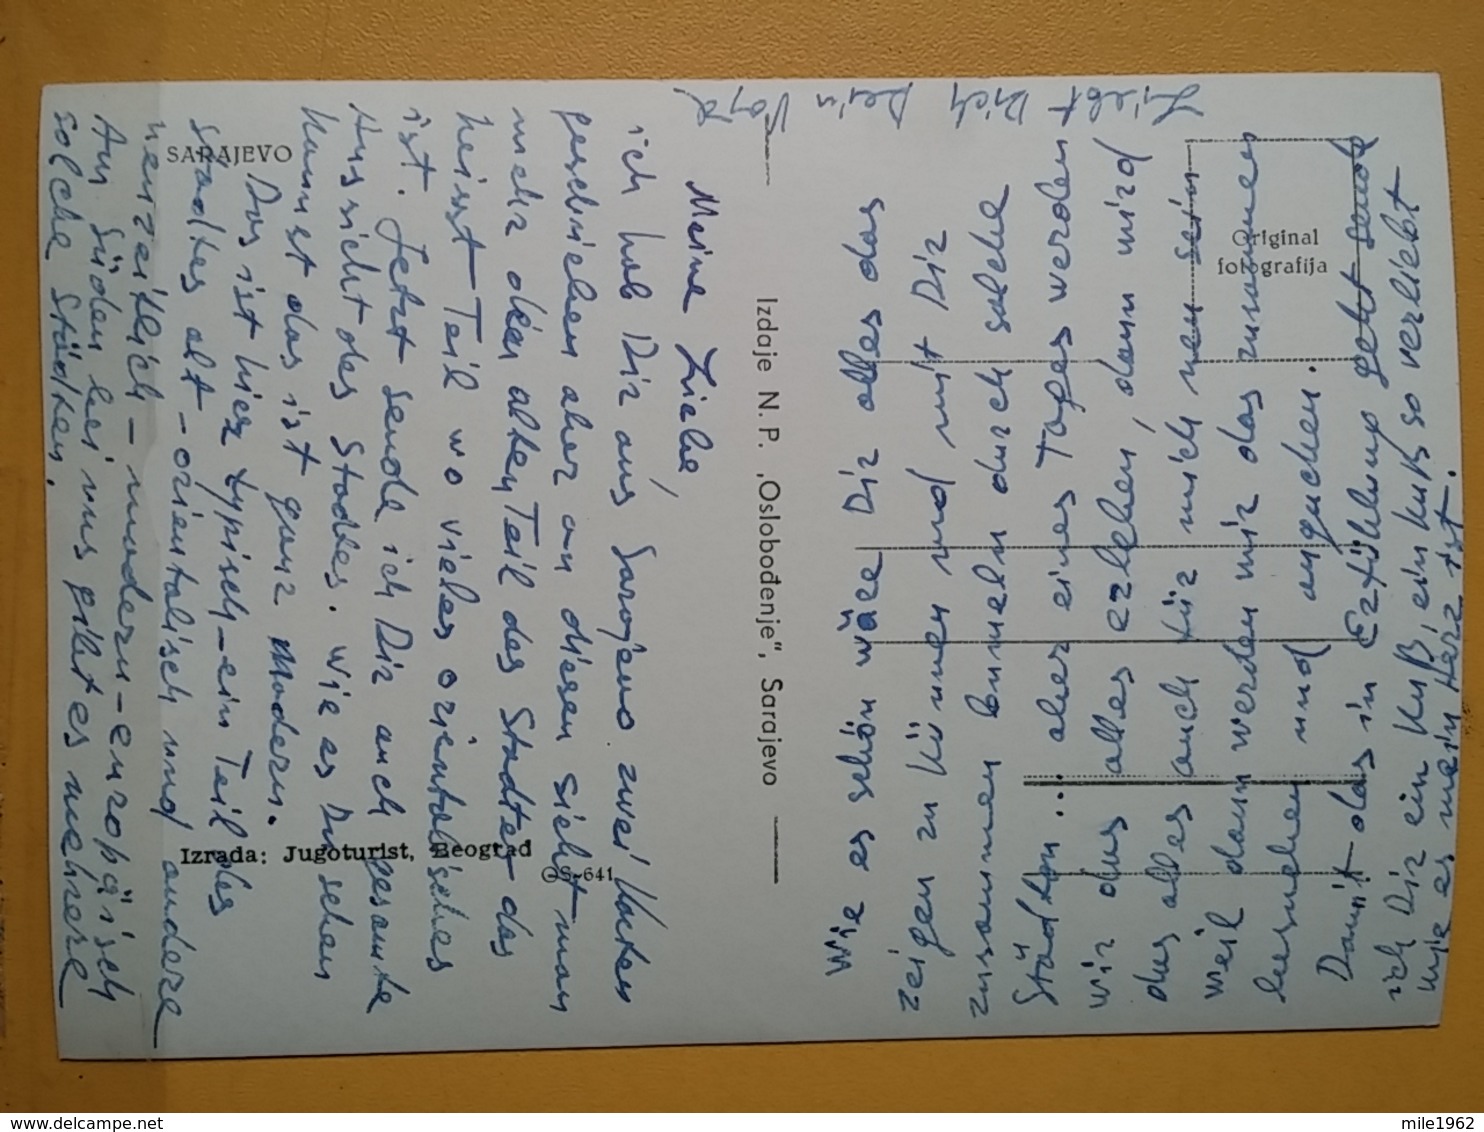 SARAJEVO
Meine Liebe,
ich hab Dir aus Sarajevo zwei Karten
geschrieben aber an diesen sieht man
mehr den alten Teil des Stadtes das
heisst Teil wo vieles orientalisches
ist. Jetzt sende ich Dir auch gesamte
Aussicht des Stadtes. Wie es Du sehen
kannst das ist ganz Modern.
Das ist hier typisch - ein Teil des
Stadtes alt - orientalisch und andere
neuzeitlich - modern - europäisch
Am Süden bei uns gibt es mehrere
solche Städten.
Izrada: Jugoturist, Beograd
OS-641
Izdaje N. P. „Oslobođenje", Sarajevo
Original
fotografija
Wie es schön wäre Dir alles das
zeigen zu können und mit Dir
zusammen bummeln durch solche
Städten ... aber eines Tages werden
wir das alles erleben, dann wird
das alles auch für mich neu sein
weil dann werden wir das zusammen
besuchen und angucken.
Damit das in Erfüllung geht sende
ich Dir ein Kuß, ein Kuß so verliebt
wie es mein Herz ist.
Liebt Dich Dein